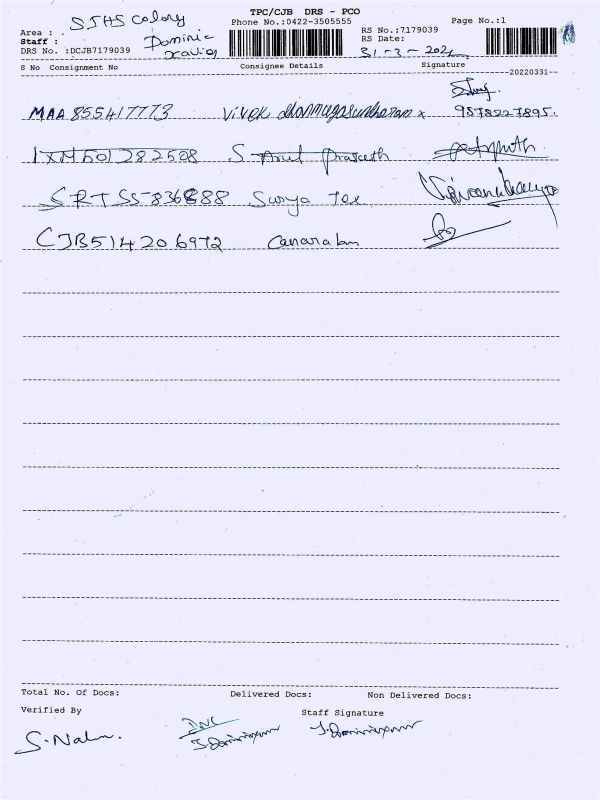 TPC/CJB DRS - PCO
SIHS colony
Phone No.:0422-3505555
Page No.:1
Area :
RS No.:7179039
Staff :
Dominic
Xavier
RS Date:
31-3-202
DRS No. :DCJB7179039
S No Consignment No Consignee Details Signature
20220331
MAA 855417773 Vivek shanmugasundharam x 9578227895.
IXM501282508 S Arul prasath
SRTSS836888 Surya Tex
CJB514206972 Canara ban
Total No. Of Docs: Delivered Docs: Non Delivered Docs:
Verified By Staff Signature